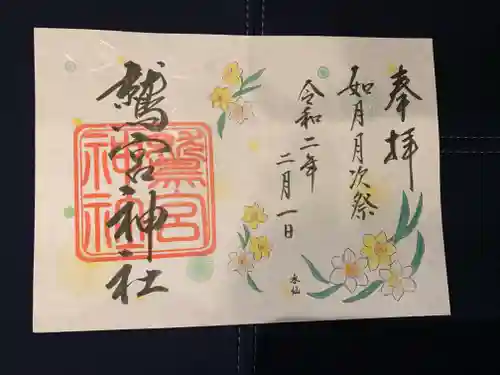 奉拝
如月月次祭
令和二年
二月一日
水仙
鷲宮神社
鷲宮
神社